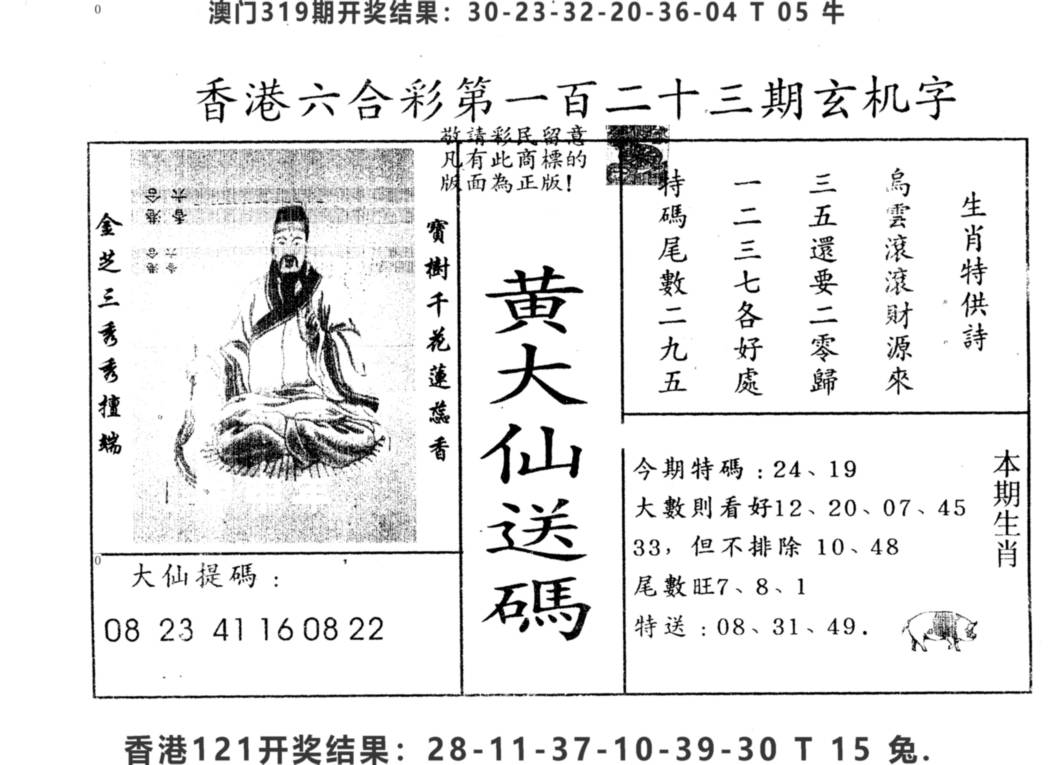 澳门319期开奖结果：30-23-32-20-36-04 T 05 牛
香港六合彩第一百二十三期玄机字
敬請彩民留意
凡有此商標的
版面為正版！
生肖特供詩
烏雲滾滾財源來
三五還要二零歸
一二三七各好處
特碼尾數二九五
寶樹千花蓮蕊香
金芝三秀秀擅端
香港六合
香港六合
黄大仙送碼
大仙提碼：
08 23 41 16 08 22
本期生肖
今期特碼：24、19
大數則看好12、20、07、45
33，但不排除 10、48
尾數旺7、8、1
特送：08、31、49.
香港121开奖结果：28-11-37-10-39-30 T 15 兔.